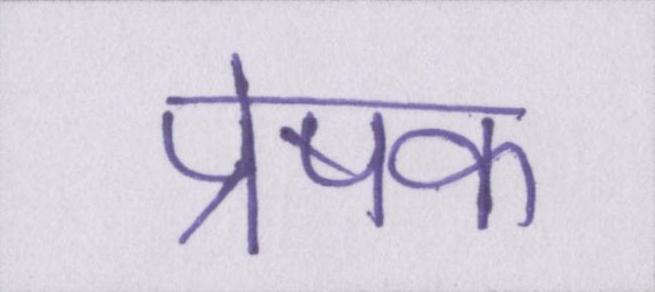 प्रेषक